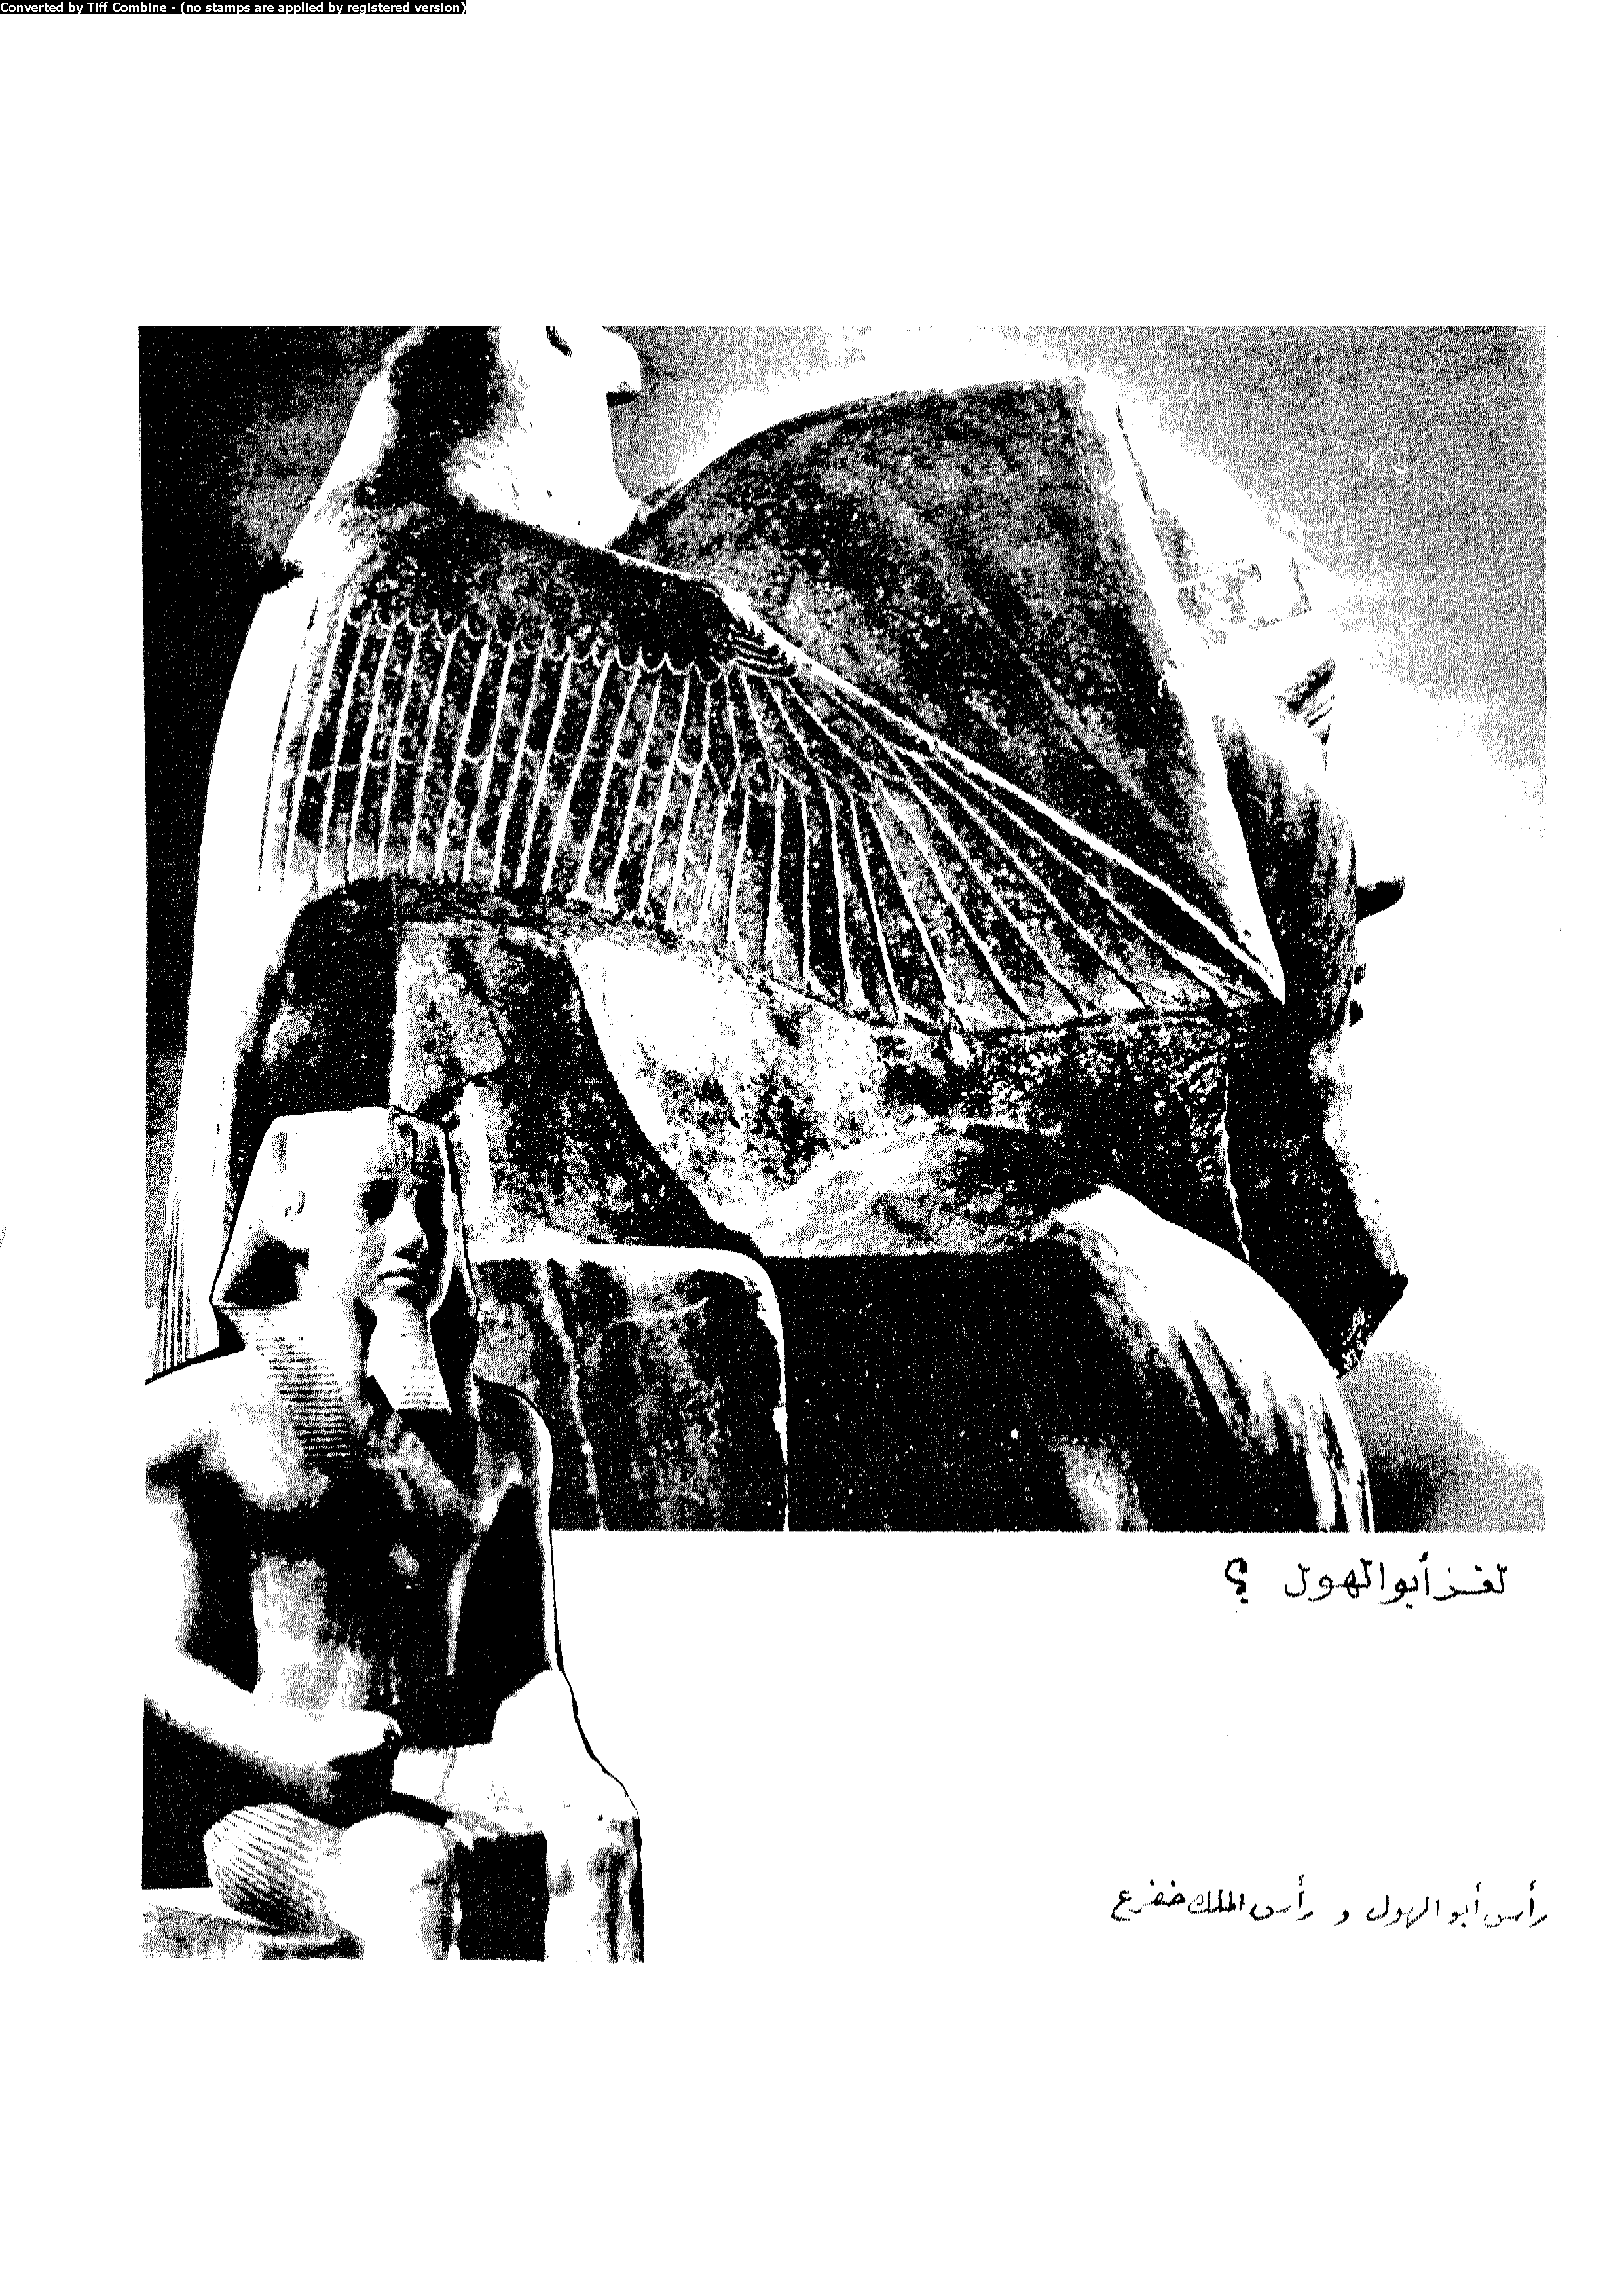 Converted by Tiff Combine - (no stamps are applied by registered version)
لغز أبو الهول ؟
رأس أبو الهول و رأس الملك خفرع